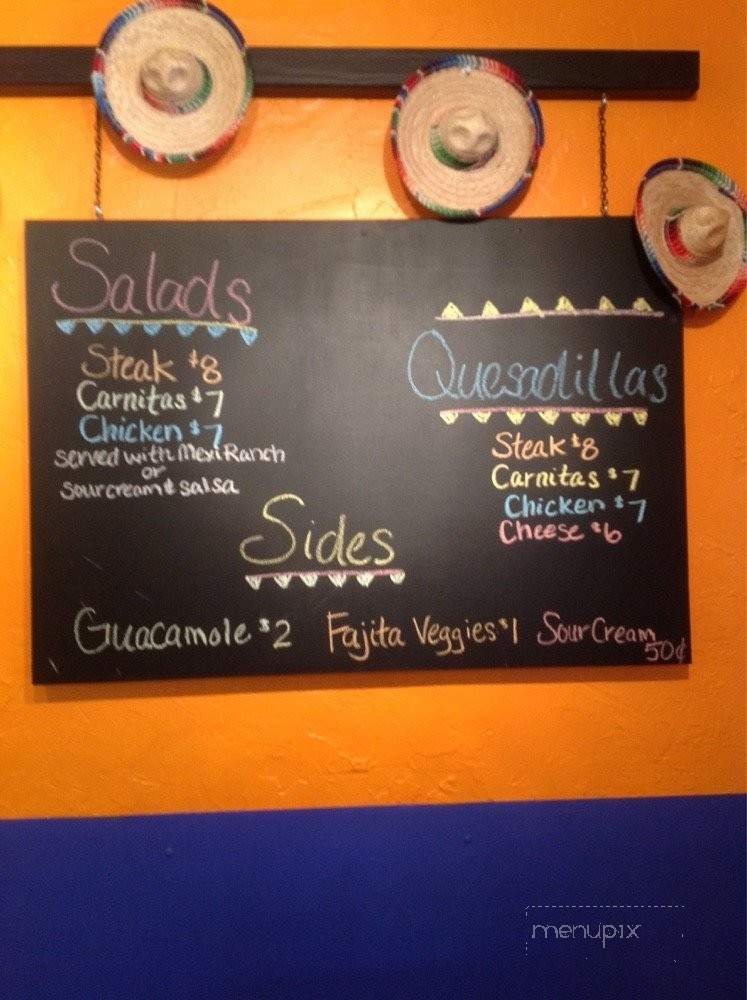 Salads
Steak $8
Carnitas $7
Chicken $7
served with Mexi Ranch
or
sour cream & salsa
Quesadillas
Steak $8
Carnitas $7
Chicken $7
Cheese $6
Sides
Guacamole $2
Fajita Veggies $1
Sour Cream
50¢
menupix